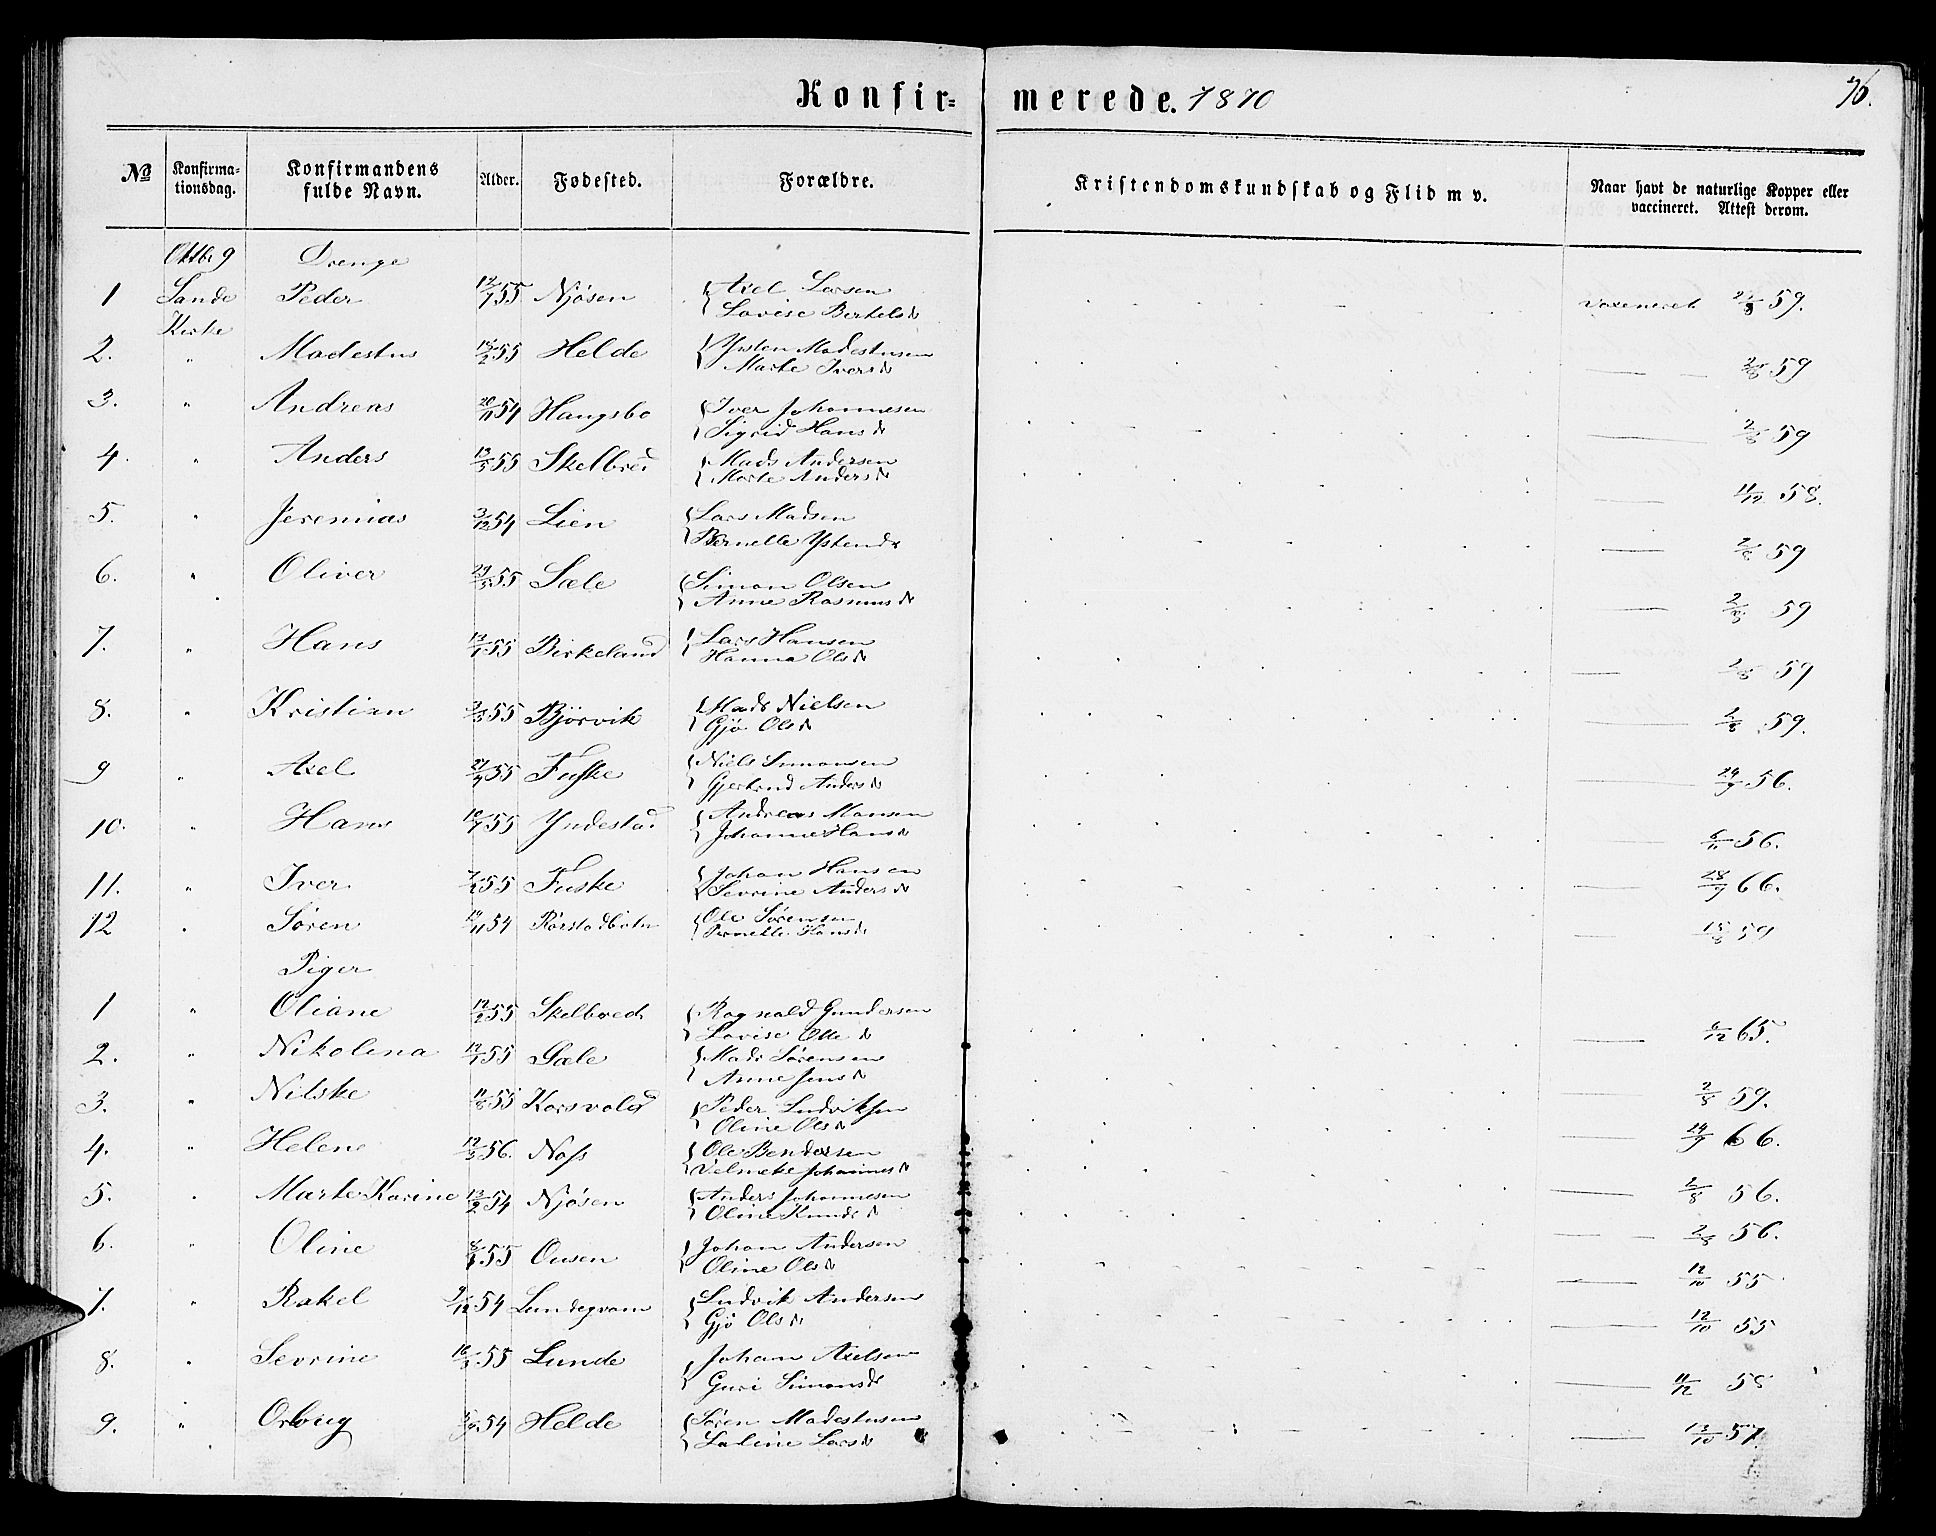 Konfir=merede. 1870
76.
No Konfirma-tionsdag. Konfirmandens fulde Navn. Alder. Fødested. Forældre. Kristendomskundskab og Flid m v. Naar havt de naturlige Kopper eller vaccineret. Attest derom.
Oktbr 9 Drenge
1 Sande Kirke Peder 55 Njøsen Axel Larsen Lovise Bertelsd vaxeneret 59.
2. " Modestus 55 Helde Ysten Modestusen Marte Iversd 59
3. " Andreas 20/11 54 Haugsbo Iver Johannesen Sigrid Hansd 2/8 59
4. " Anders 55 Skelbred Mads Andersen Marte Andersd 11/12 58.
5. " Jeremias 3/12 54 Lien Lars Madsen Bernelle Ystend 2/8 59
6. " Oliver 55 Sæle Simon Olsen Anne Rasmusd 2/8 59
7. " Hans 55 Birkeland Lars Hansen Hanna Olsd 2/8 59
8. " Kristian 55 Bjørvik Mads Nielsen Gjø Olsd 2/8 59.
9 " Axel 55 Fuske Niels Simonsen Gjertrud Andersd 56.
10. " Hans 55 Yndestad Andreas Monsen Johanne Hansd 56.
11. " Iver 55 Fuske Johan Hansen Sevrine Andersd 28/9 66.
12 " Søren 54 Ole Sørensen Pernelle Hansd 59
Piger
1 " Oliane 12/2 55 Skelbred Ragnald Gundersen Lovise Olled 65.
2. " Nikolina 55 Sæle Mads Sørensen Anne Jensd
3. " Nilske 55 Korsvold Peder Ludviksen Oline Olsd 2/8 59.
4. " Helene 56. Noss Ole Bendixsen Velmeke Johannesd 66.
5. " Marte Karine 54 Njøsen Anders Johannesen Oline Knudsd 2/8 56.
6. " Oline 55 Ousen Johan Andersen Oline Olsd 2/8 56.
7. " Rakel 54 Lundegram Ludvik Andersen Gjø Olsd 12/10 55
8. " Sevrine 55 Lunde Johan Axelsen Guri Simonsd 12/10 55
11/12 58
9. " 54 Helde Søren Modestusen Saline Larsd 57.